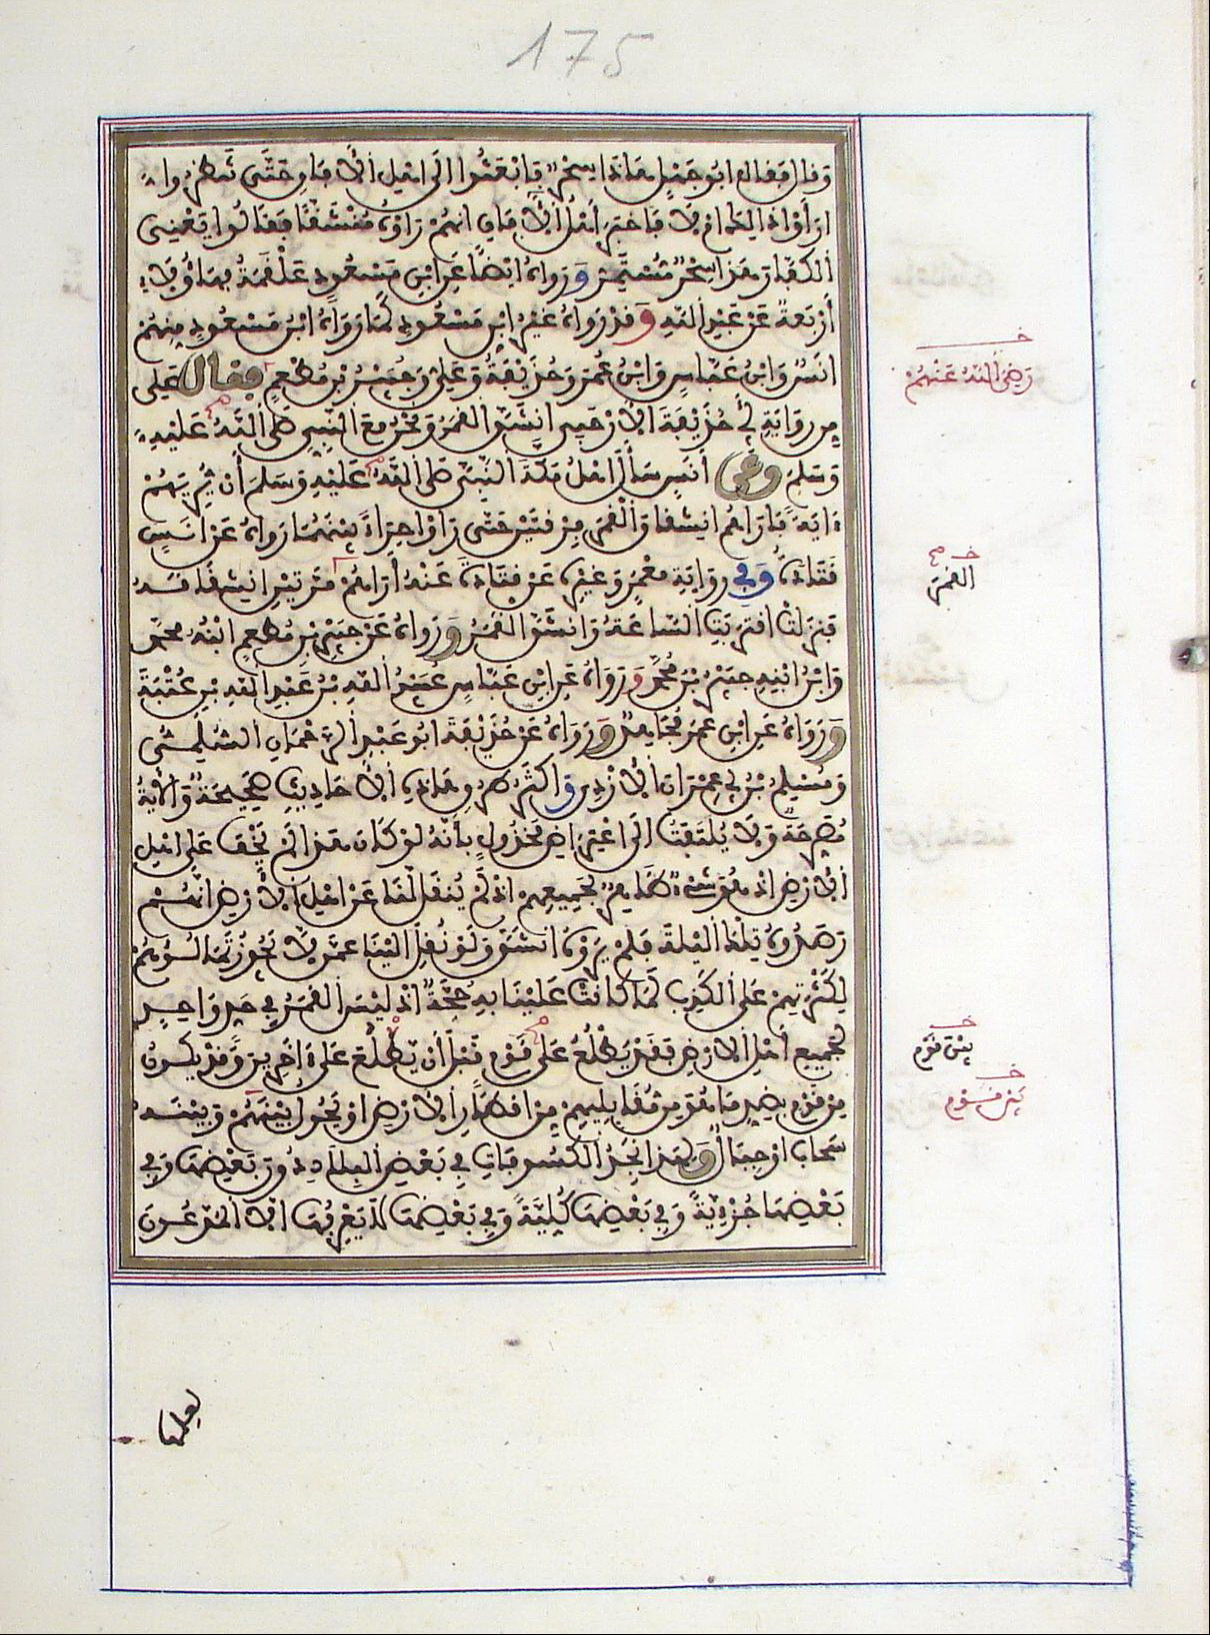 175
وقال فقال ابو جهل هاذا سحر فابعثوا الى اهل الآفاق حتى تنظروا
ارأوا ذالك ام لا فاخبر أهل الآفاق انهم رأوه منشقا فقالوا يعنى
الكفار هذا سحر مستمر ورواه ايضا عن ابن مسعود علقمة فهاؤلاء
أربعة عن عبد الله وقد رواه غير ابن مسعود كما رواه ابن مسعود منهم
انس وابن عباس وابن عمر وحذيفة وعلى وجبير بن مطعم فقال على
من رواية أبى حذيفة الارحبى انشق القمر ونحن مع النبى صلى الله عليه
وسلم وعن أنس سأل اهل مكة النبى صلى الله عليه وسلم أن يريهم
ءاية فاراهم انشقاق القمر مرقتين حتى رأوا حراء بينهما رواه عن انس
قتادة وفى رواية معمر وغيره عن قتادة عنه أراهم مرتين انشقاقه
فنزلت اقتربت الساعة وانشق القمر ورواه عن جبير بن مطعم ابنه محمد
وابن ابنه جبير بن محمد ورواه عن ابن عباس عبيد الله بن عبد الله بن عتبة
ورواه عن ابن عمر مجاهد ورواه عن حذيفة ابو عبد الرحمان السلمى
ومسلم بن أبى عمران الازدى واكثر طرق هاذه الاحاديث صحيحة والآية
مصرحة ولا يلتفت الى اعتراض مخذول بأنه لو كان هذا لم يخف على اهل
الارض اذ هو شىء ظاهر لجميعهم اذ لم ينقل لنا عن اهل الأرض انهم
رصدوه تلك الليلة فلم يروه انشق ولو نقل الينا عمن لا يجوز تمالؤهم
لكثرتهم على الكذب لما كانت علينا به حجة اذ ليس القمر فى حد واحد
لجميع أهل الارض فقد يطلع على قوم قبل أن يطلع على ءاخرين وقد يكون
من قوم بضد ما هو من مقابليهم من اقطار الارض او يحول بين قوم وبينه
سحاب او جبال ولهذا نجد الكسوفات فى بعض البلاد دون بعض وفى
بعضها جزءية وفى بعضها كلية وفى بعضها لا يعرفها الا المدعون
رضى الله عنهم
القمر
بين قوم
بين قوم
لعلمها